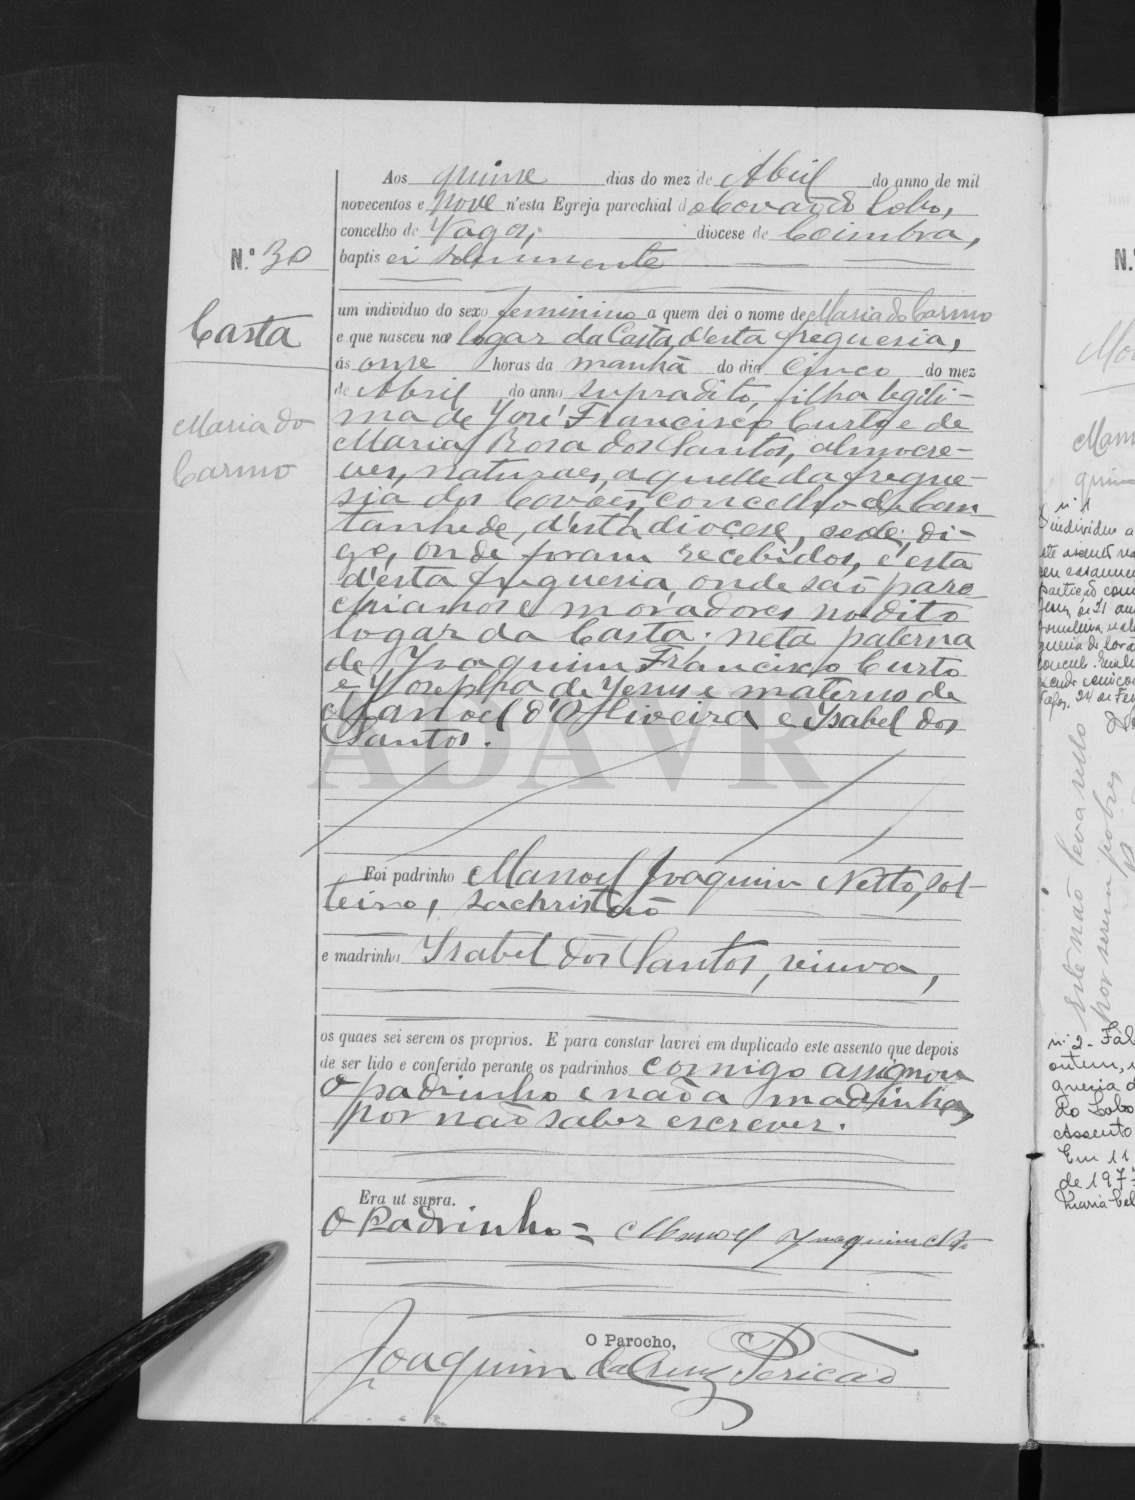 Aos quinze dias do mez de Abril do anno de mil
novecentos e nove n'esta Egreja parochial do Covão do Lobo,
concelho de Vagos, diocese de Coimbra,
N.º 30
baptisei solemnemente
um individuo do sexo feminino a quem dei o nome de Maria do Carmo
Casta
e que nasceu no logar da Casta d'esta freguesia,
ás onze horas da manhã do dia cinco do mez
de Abril do anno supradito, filha legiti-
Maria do
Carmo
ma de José Francisco Curto e de
Maria Rosa dos Santos, almocre-
ves, naturaes, aquelle da fregue-
sia dos Covões, concelho de Can
tanhede, d'esta diocese, sede, di-
go, onde foram recebidos, e esta
d'esta freguesia, onde são paro
chianos e moradores no dito
logar da Casta; neta paterna
de Joaquim Francisco Curto
e Josepha de Jesus e materna de
Manoel d'Oliveira e Isabel dos
Santos.
ADAVR
Foi padrinho Manoel Joaquim Netto, sol-
teiro, sachristão
e madrinha Isabel dos Santos, viuva,
os quaes sei serem os proprios. E para constar lavrei em duplicado este assento que depois
de ser lido e conferido perante os padrinhos comigo assignou
o padrinho e não a madrinha,
por não saber escrever.
Era ut supra.
O Padrinho = Manoel Joaquim Netto
O Parocho,
Joaquim da Cruz Pericão
N.º
n.º 1
este não leva sello
por serem pobres
n.º 2 - Fal
ontem,
guesia d
do Lobo
Assento
Em 11
de 197
Maria Cel